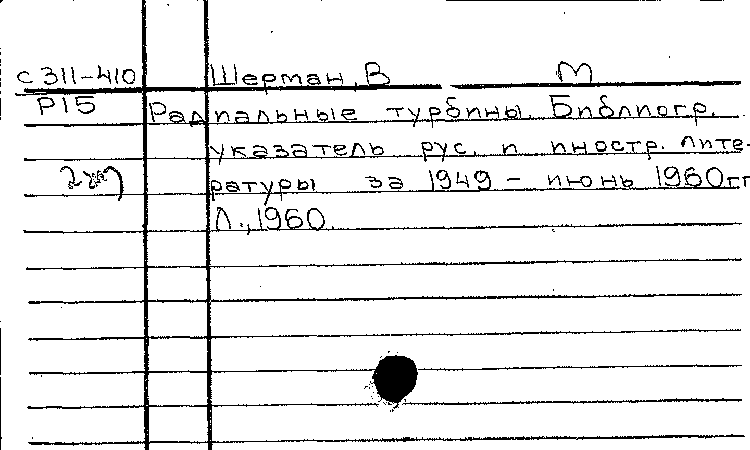 с 311-410 Шерман, В М
Р15 Радиальные турбины. Библиогр.
указатель рус. и иностр. лите-
ратуры за 1949 - июнь 1960гг
Л., 1960.